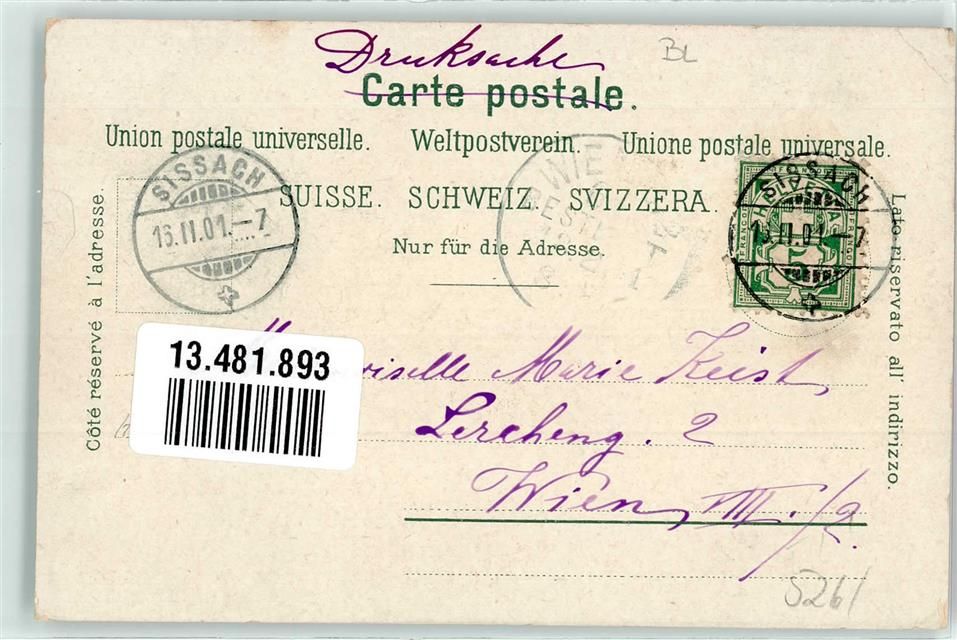 Drucksache
BL
Carte postale.
Union postale universelle. Weltpostverein. Unione postale universale.
SUISSE. SCHWEIZ. SVIZZERA.
Nur für die Adresse.
Côté réservé à l'adresse.
Lato riservato all' indirizzo.
SISSACH
15.II.01.-7
SISSACH
15.II.01.-7
WIE
13.481.893
Marie Keist
Lercheng. 2
Wien, VIII./2.
5261